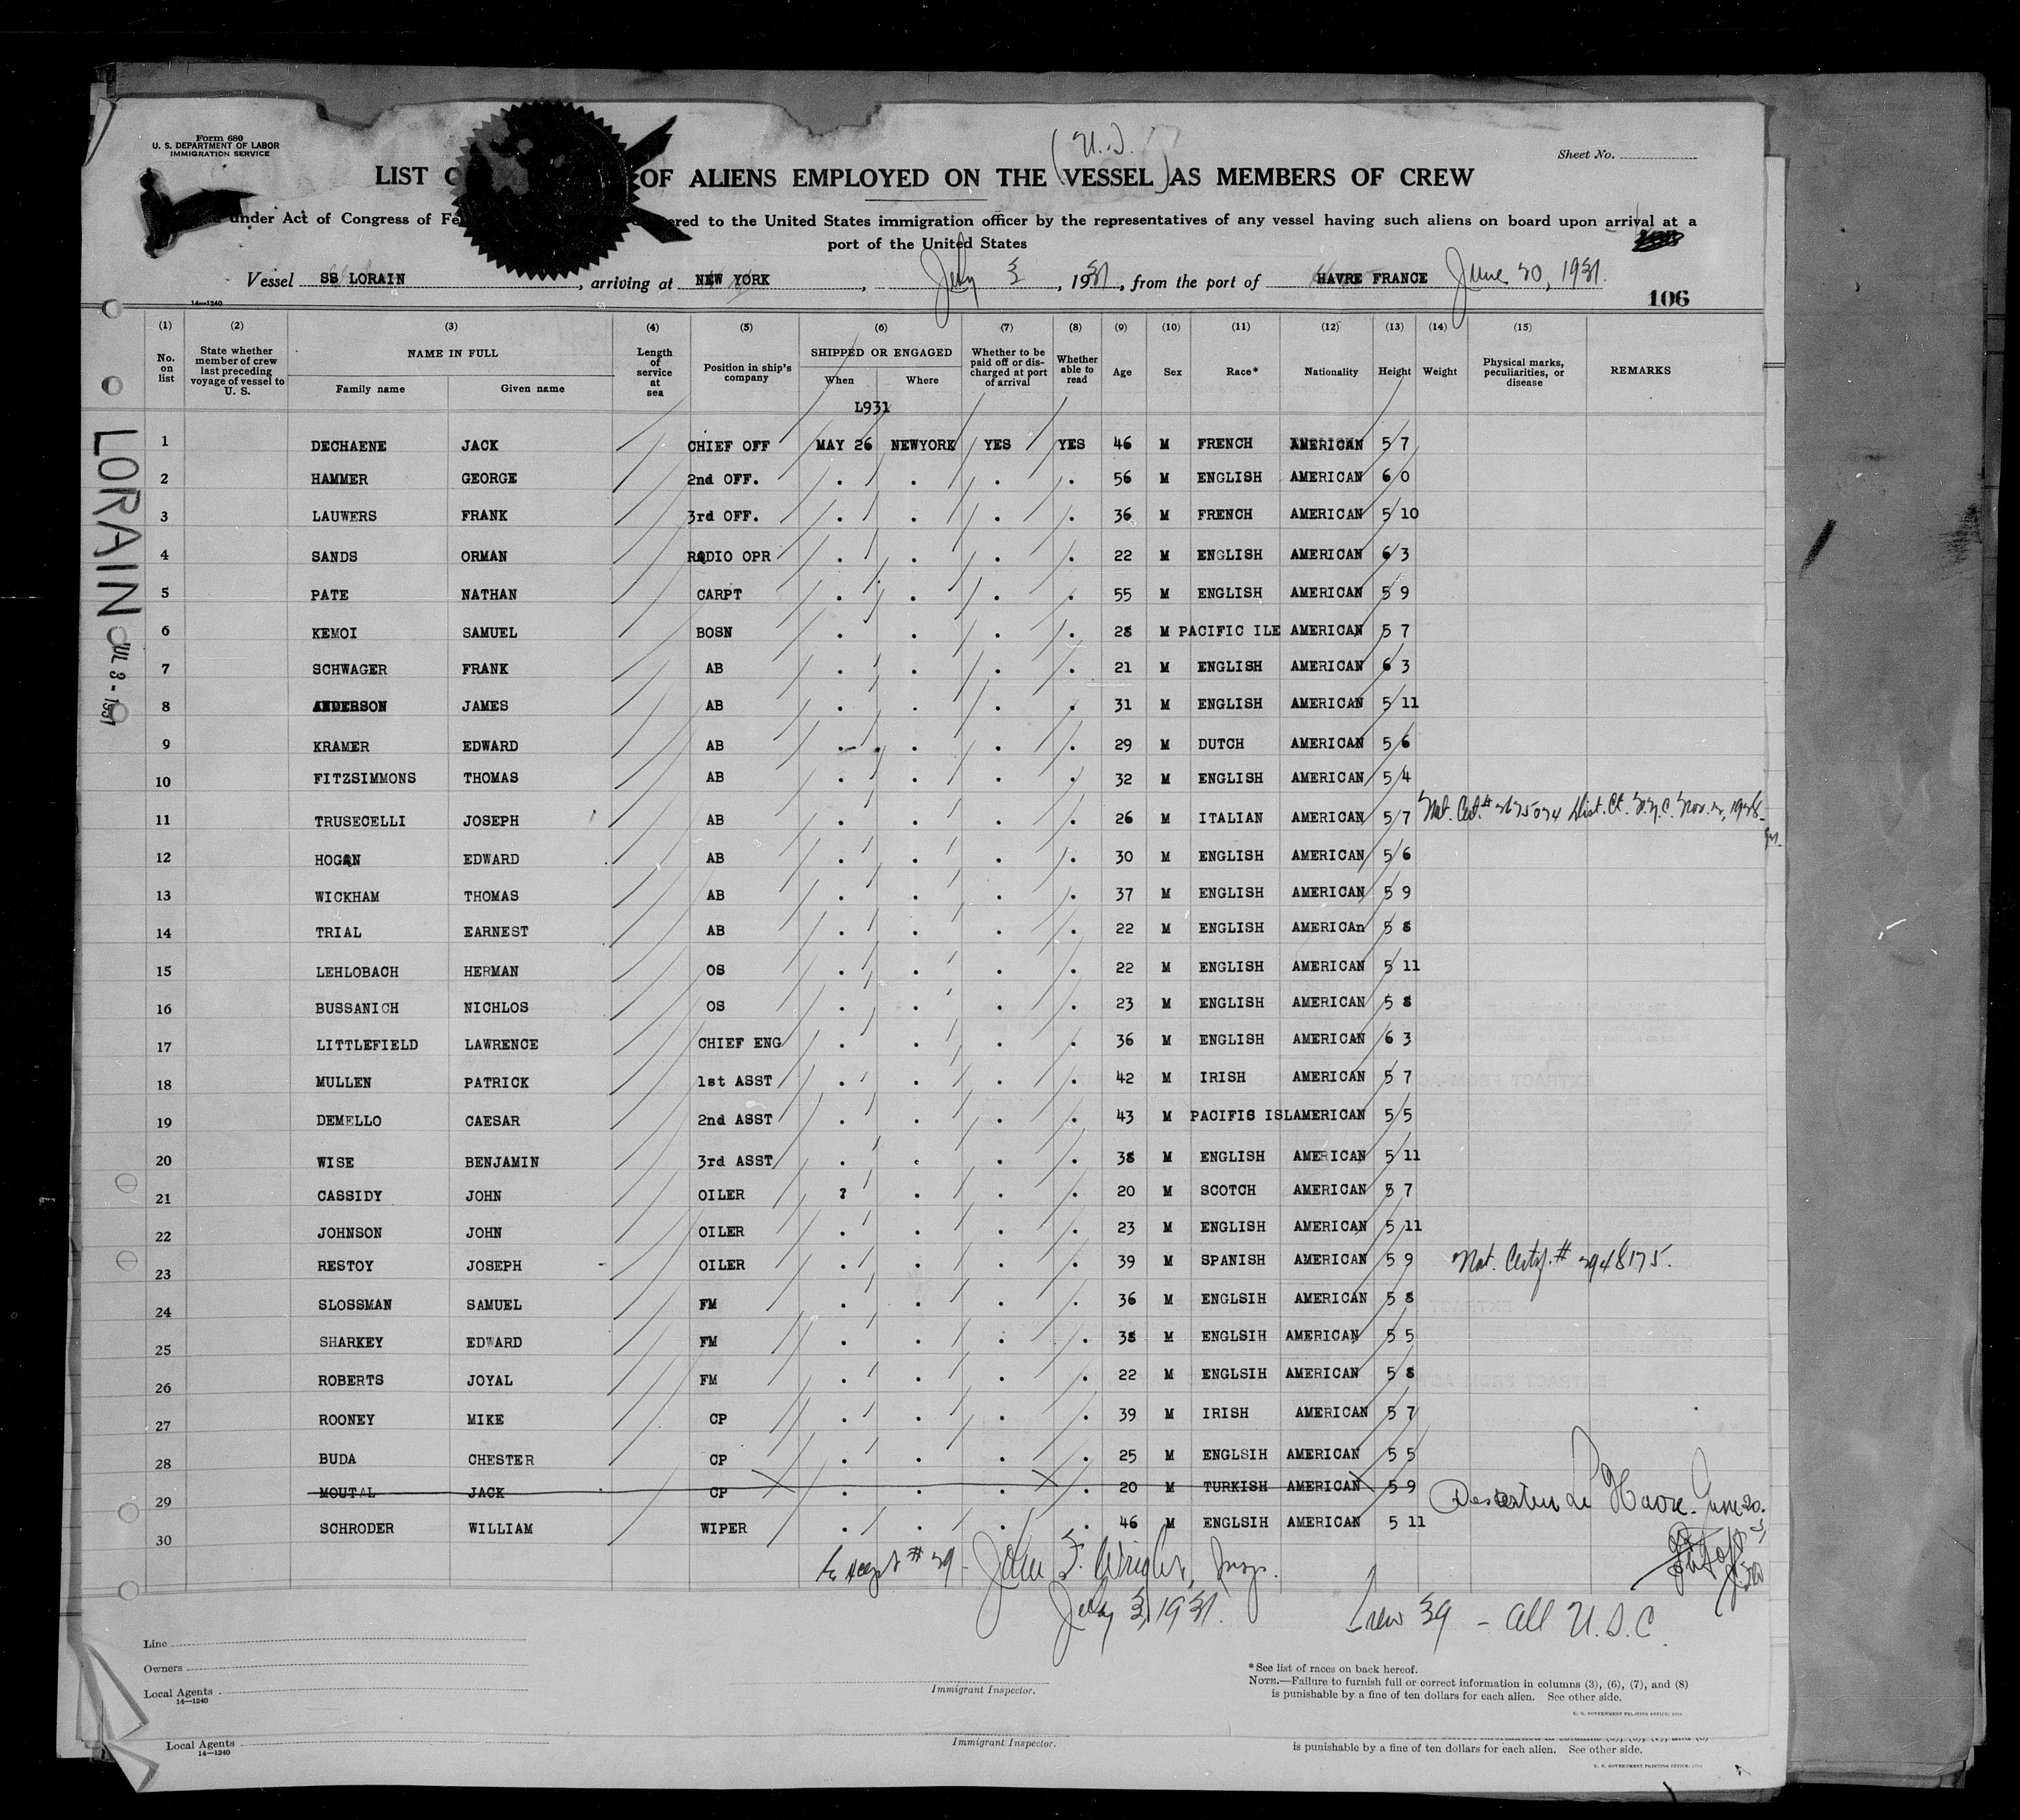 Form 680
U. S. DEPARTMENT OF LABOR
IMMIGRATION SERVICE
(U.S.)
Sheet No.
LIST OF ALIENS EMPLOYED ON THE VESSEL AS MEMBERS OF CREW
under Act of Congress of to the United States immigration officer by the representatives of any vessel having such aliens on board upon arrival at a
port of the United States
Vessel SS LORAIN, arriving at NEW YORK, July 3, 1931, from the port of HAVRE FRANCE June 20, 1931.
14—1240
106
(1) (2) (3) (4) (5) (6) (7) (8) (9) (10) (11) (12) (13) (14) (15)
No. on list State whether member of crew last preceding voyage of vessel to U. S. NAME IN FULL Family name Given name Length of service at sea Position in ship's company SHIPPED OR ENGAGED When Where Whether to be paid off or discharged at port of arrival Whether able to read Age Sex Race* Nationality Height Weight Physical marks, peculiarities, or disease REMARKS
L931
1 DECHAENE JACK CHIEF OFF MAY 26 NEWYORK YES YES 46 M FRENCH AMERICAN 5 7
2 HAMMER GEORGE 2nd OFF. . . . . 56 M ENGLISH AMERICAN 6 0
3 LAUWERS FRANK 3rd OFF. . . . . 36 M FRENCH AMERICAN 5 10
4 SANDS ORMAN RADIO OPR . . . . 22 M ENGLISH AMERICAN 6 3
5 PATE NATHAN CARPT . . . . 55 M ENGLISH AMERICAN 5 9
6 KEMOI SAMUEL BOSN . . . . 28 M PACIFIC ILE AMERICAN 5 7
7 SCHWAGER FRANK AB . . . . 21 M ENGLISH AMERICAN 6 3
8 ANDERSON JAMES AB . . . . 31 M ENGLISH AMERICAN 5 11
9 KRAMER EDWARD AB . . . . 29 M DUTCH AMERICAN 5 6
10 FITZSIMMONS THOMAS AB . . . . 32 M ENGLISH AMERICAN 5 4
11 TRUSECELLI JOSEPH AB . . . . 26 M ITALIAN AMERICAN 5 7 Nat. Cert. # 2675074 Dist. Ct. N.Y.C. Nov. 2, 1928.
12 HOGAN EDWARD AB . . . . 30 M ENGLISH AMERICAN 5 6
13 WICKHAM THOMAS AB . . . . 37 M ENGLISH AMERICAN 5 9
14 TRIAL EARNEST AB . . . . 22 M ENGLISH AMERICAn 5 8
15 LEHLOBACH HERMAN OS . . . . 22 M ENGLISH AMERICAN 5 11
16 BUSSANICH NICHLOS OS . . . . 23 M ENGLISH AMERICAN 5 8
17 LITTLEFIELD LAWRENCE CHIEF ENG . . . . 36 M ENGLISH AMERICAN 6 3
18 MULLEN PATRICK 1st ASST . . . . 42 M IRISH AMERICAN 5 7
19 DEMELLO CAESAR 2nd ASST . . . . 43 M PACIFIC ISLAMERICAN 5 5
20 WISE BENJAMIN 3rd ASST . . . . 38 M ENGLISH AMERICAN 5 11
21 CASSIDY JOHN OILER ? . . . 20 M SCOTCH AMERICAN 5 7
22 JOHNSON JOHN OILER . . . . 23 M ENGLISH AMERICAN 5 11
23 RESTOY JOSEPH OILER . . . . 39 M SPANISH AMERICAN 5 9 Nat. Certf. # 2948175.
24 SLOSSMAN SAMUEL FM . . . . 36 M ENGLSIH AMERICAN 5 8
25 SHARKEY EDWARD FM . . . . 38 M ENGLSIH AMERICAN 5 5
26 ROBERTS JOYAL FM . . . . 22 M ENGLSIH AMERICAN 5 8
27 ROONEY MIKE CP . . . . 39 M IRISH AMERICAN 5 7
28 BUDA CHESTER CP . . . . 25 M ENGLSIH AMERICAN 5 5
29 MOUTAL JACK CP . . . . 20 M TURKISH AMERICAN 5 9 Le Havre June 20.
30 SCHRODER WILLIAM WIPER . . . . 46 M ENGLSIH AMERICAN 5 11
Except # 29 - John F. Wright, Insp.
July 3, 1931.
Crew 39 - all U.S.C.
LORAIN
JUL 3 - 1931
Line
Owners
Local Agents
14—1240
Immigrant Inspector.
*See list of races on back hereof.
NOTE.—Failure to furnish full or correct information in columns (3), (6), (7), and (8)
is punishable by a fine of ten dollars for each alien. See other side.
Local Agents
14—1240
Immigrant Inspector.
is punishable by a fine of ten dollars for each alien. See other side.